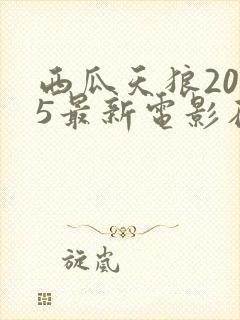 西瓜天狼20
5最新電影不
旋嵐